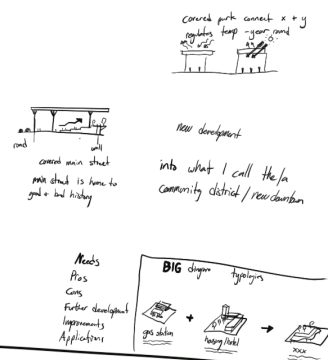 covered park connect x + y
regulates temp - year round
road
wall
covered main street
main street is home to
good + bad history
new development
into what I call the/a
community district / new downtown
Needs
Pros
Cons
Further development
Improvements
Applications
BIG diagram typologies
gas station
+
housing/hotel
xxx